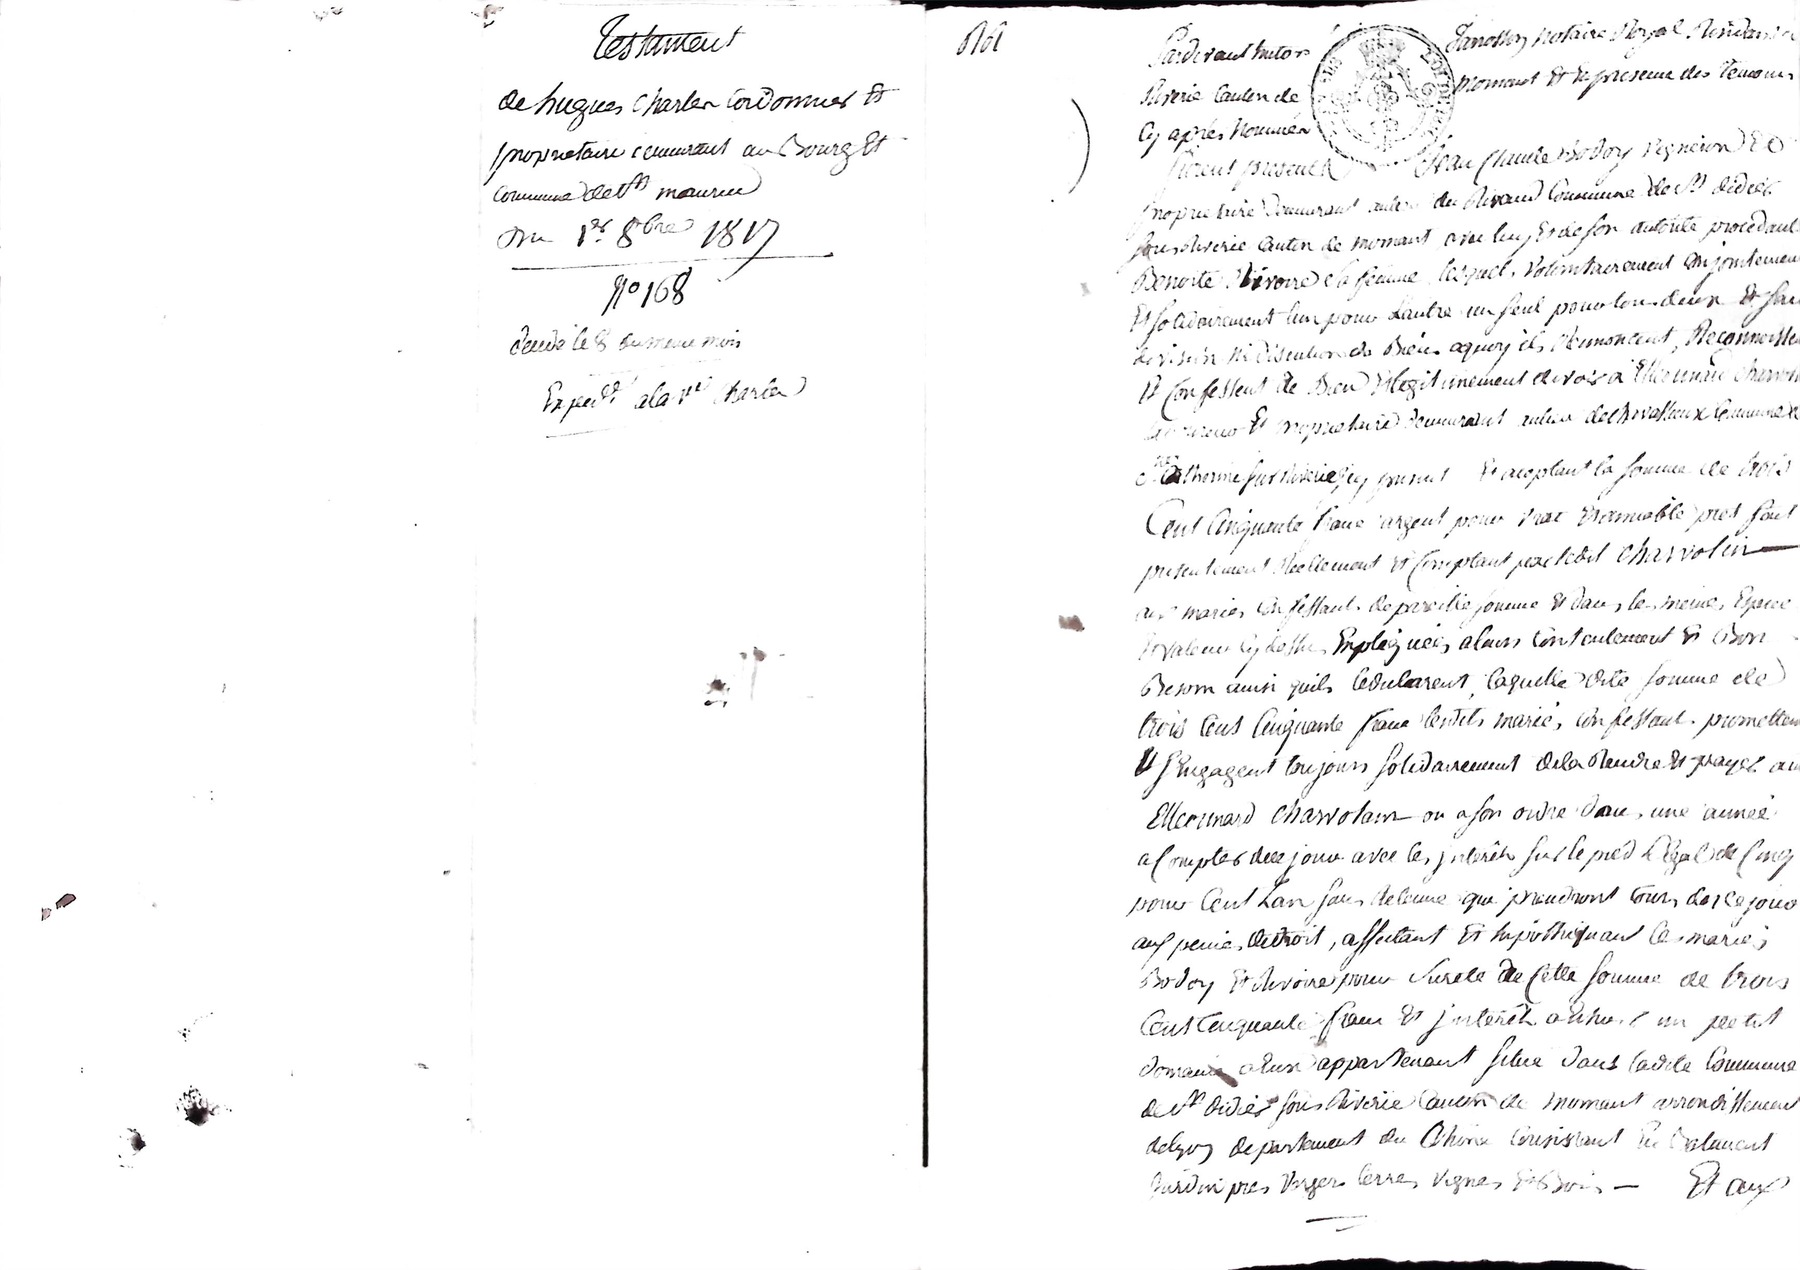 Testament
de hugues Charles Cordonnier Et
proprietaire demeurant au Bourg Et
commune de St maurice
Du 1er 8bre 1817
No 168
decedé le 8 du meme mois
Exped. a la Ve Charles
Pardevant hutor Janosson Notaire Royal Residant a
Riverie Canton de mornant Et En presence des Temoins
Cy après Nommés
furent presents Jean Claude Bodoy Vigneron Et
proprietaire demeurant au lieu du Rivaud Commune de St didier
sous Riverie Canton de mornant, avec luy Et de son autorité procedant
Benoite Rivoire sa femme, lesquels volontairement Conjointement
Et solidairement l'un pour L'autre un seul pour tous deux Et sans
division Ni discution de Biens aquoy ils Renoncent, Reconnoissent
Et Confessent de Bien Et legitimement devoir a Sr Ennemond Charvolin
Et proprietaire demeurant au lieu de Commune de
Ste Catherine sur Riverie icy present Et acceptant la somme de trois
Cent Cinquante francs argent pour vrai Et amiable pret fait
presentement Réellement Et Comptant par ledit Charvolin
aux mariés Confessants de pareille somme Et dans les memes Especes
Et valeurs Cy dessus Expliquées, a leurs Contentement Et Bon
Besoin ainsi quils le declarent, laquelle dite somme de
trois Cent Cinquante francs lesdits mariés Confessants promettent
Et sEngagent toujours solidairement de la Rendre Et payer au
Sr Ennemond Charvolin ou a son ordre dans une année
a Compter de ce jour avec les jnterêts sur le pied Légal de Cinq
pour Cent L'an sans Retenue qui prendront Cours des ce jour
aux peines de droit, affectant Et hipothéquant les mariés
Bodoy Et Rivoire pour sureté de Cette somme de trois
Cent Cinquante francs Et jnterêts un petit
domaine a Eux appartenant situé dans ladite Commune
de St didier sous Riverie Canton de mornant arrondissement
de Lyon departement du Rhône Consistant En Batiment
Jardin prés Verger terres Vignes Et Bois — Et aux